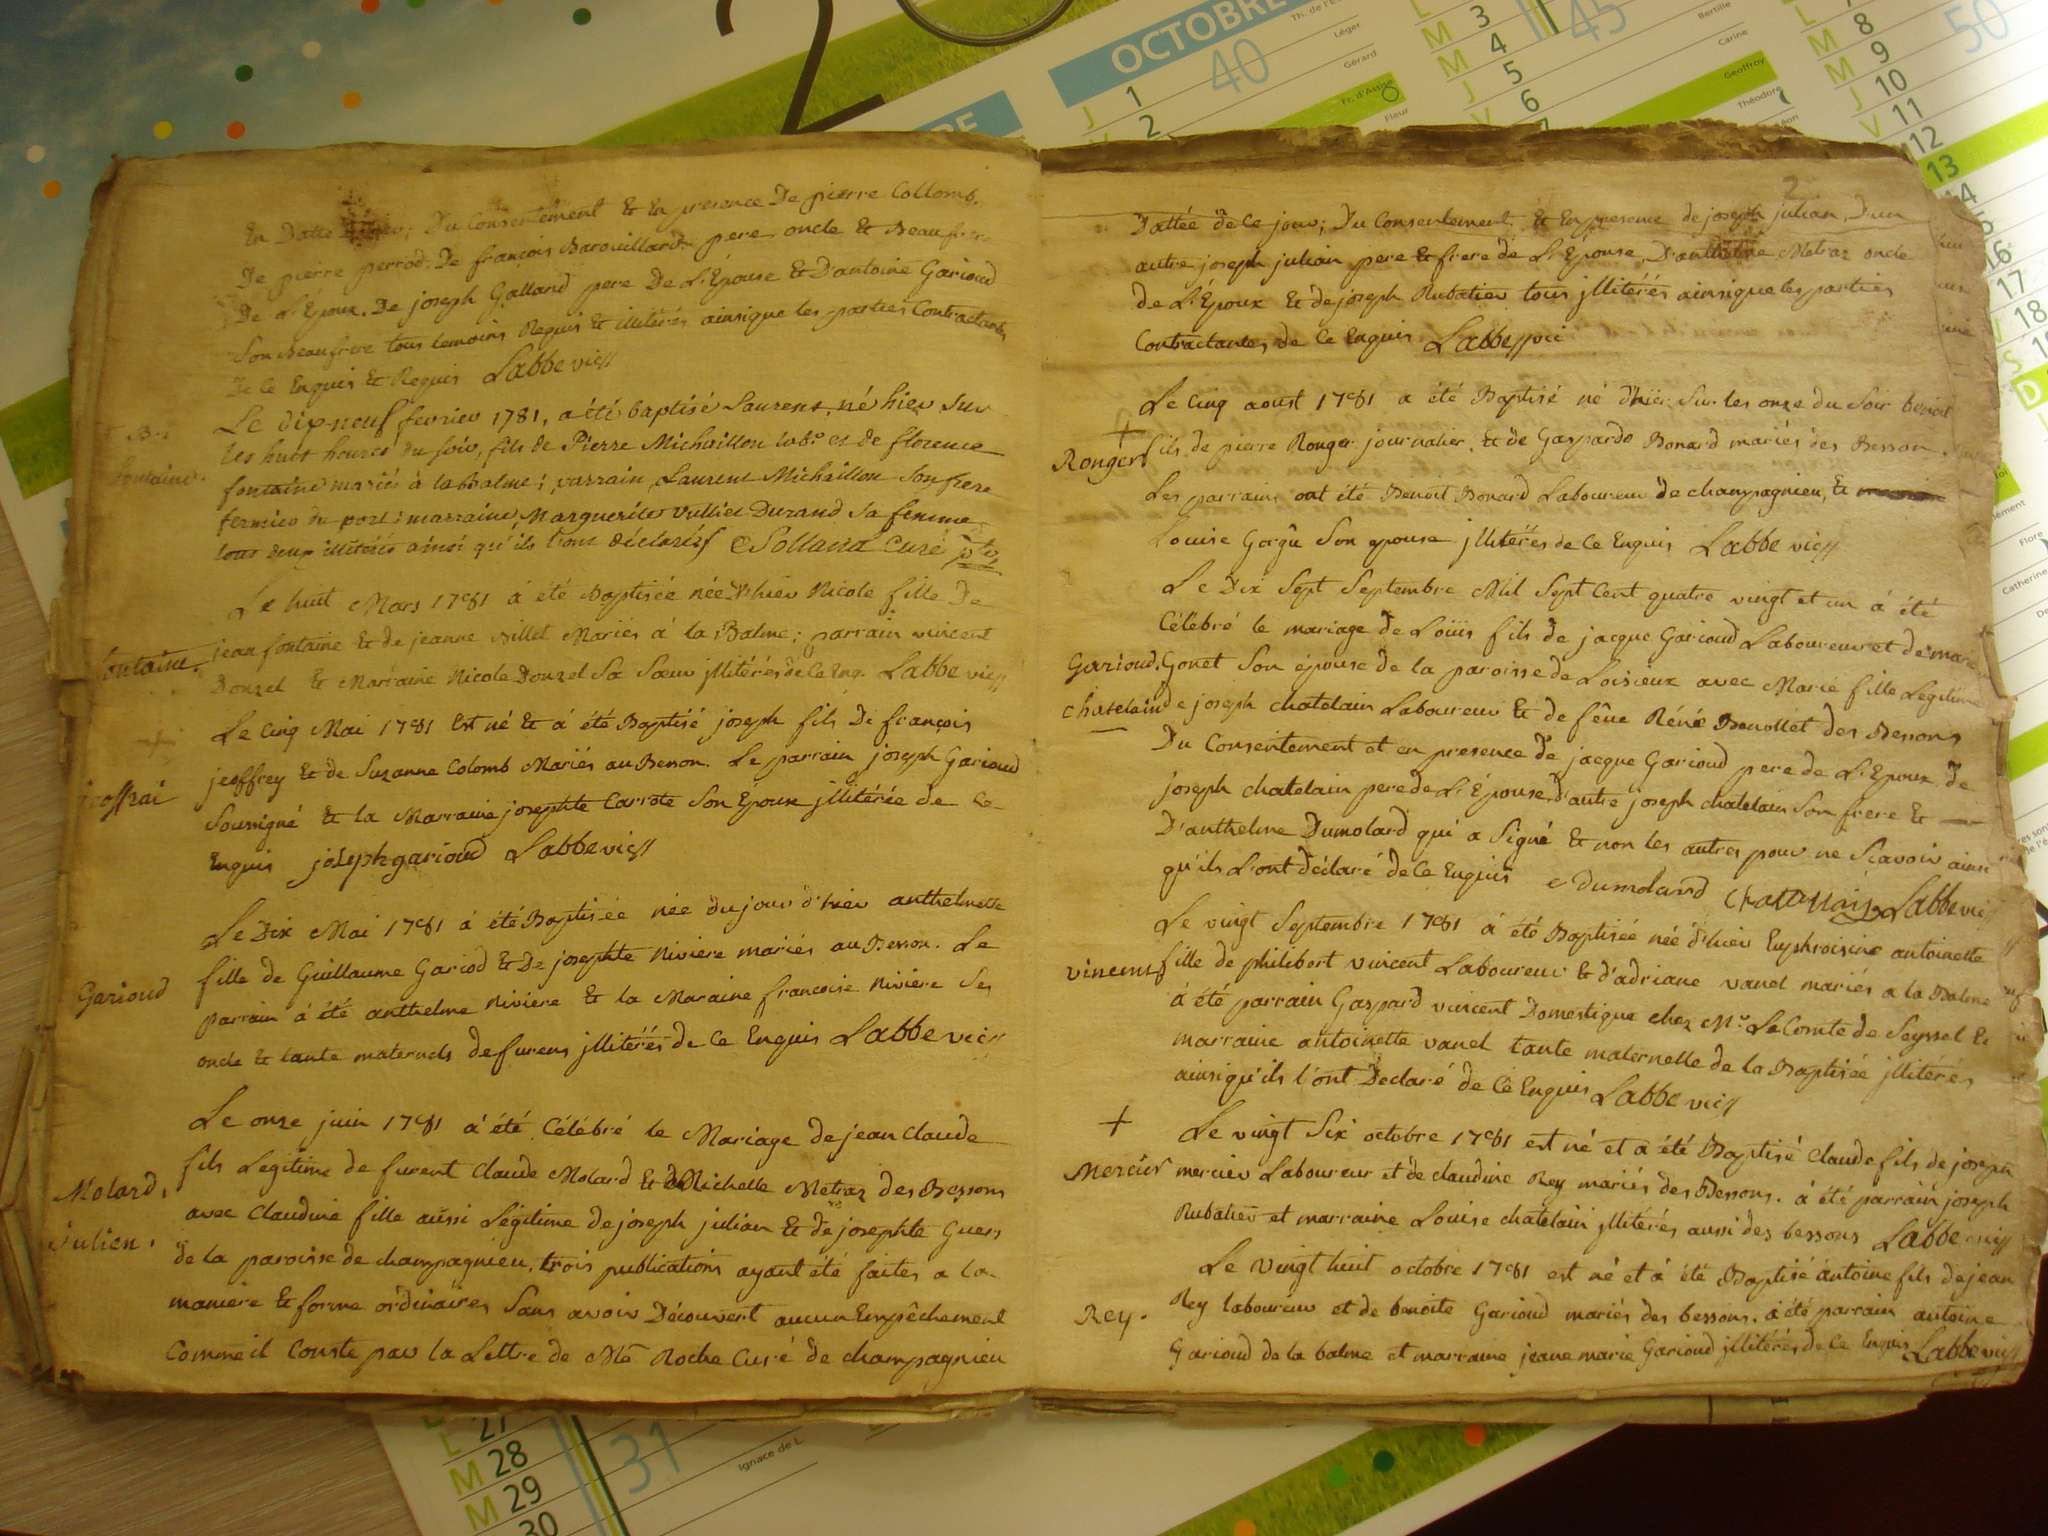 En Datte d'hier; Du Consentement Et En presence De pierre Collomb,
De pierre perrod. De françois Barouillard pere oncle Et Beaufrere
De L'Époux. De joseph Galland pere De L'Épouse Et D'antoine Garioud
Son Beaufrere tous temoins Requis Et illitérés ainsique les parties Contractantes
De Ce Enquis Et Requis Labbe vic//
Le dix-neuf fevrier 1781, a été baptisé Laurent, né hier sur
les huit heures du soir, fils de Pierre Michaillon lab.r et de florence
fontaine mariés à la Balme; parrain, Laurent Michaillon son frere
fermier du port; marraine, Marguerite vulliet Durand sa femme,
tous deux illitérés ainsi qu'ils l'ont déclaré Sollana Curé
fontaine.
Le huit Mars 1781 à été Baptisée née D'hier Nicole fille De
jean fontaine Et de jeanne Millet Mariés à la Balme; parrain vincent
Donzel Et Marraine Nicole Donzel Sa Sœur jllitérés de Ce Enq. Labbe vic//
fontaine.
Le Cinq Mai 1781 Est né Et à été Baptisé joseph fils De françois
jeoffrey Et de Suzanne Colomb Mariés au Besson. Le parrain joseph Garioud
Soussigné Et la Marraine josephte Carrote Son Époux jllitérée de Ce
Enquis josephgarioud Labbe vic//
jeoffrai
Le Dix Mai 1781 à été Baptisée née du jour d'hier anthelmette
fille de Guillaume Gariod Et De josephte Riviere mariés au Besson. Le
parrain à été anthelme Riviere Et la Maraine francoise Riviere Ses
oncle Et tante maternels de furens jllitérés de Ce Enquis Labbe vic//
Garioud
Le onze juin 1781 à été Célébré le Mariage de jean Claude
fils Legitime de furent Claude Molard Et de Michelle Metraz des Bessons
avec Claudine fille aussi Légitime de joseph julian Et de josephte Guers
de la paroisse de champagnieu, trois publications ayant été faites a la
maniere Et forme ordinaires Sans avoir Découvert aucun Empêchement
Comme il Conste par la Lettre de Mr̃e Roche Curé de champagnieu
Molard,
julien.
2
Dattée de Ce jour; Du Consentement Et En presence de joseph julian, D'un
autre joseph julian pere Et frere de L'Épouse, D'anthelme Metraz oncle
de L'Époux Et de joseph Rubatier tous jllitérés ainsique les parties
Contractantes, de Ce Enquis Labbe vic
Le Cinq aoust 1781 a été Baptisé né d'hier Sur les onze du Soir benoit
+
Ronger fils de pierre Ronger journalier Et de Gasparde Bonard mariés des Besson.
Les parrains ont été Benoît Bonard Laboureur de champagnieu, Et
Louise Gorgû Son epouse jllitérés de Ce Enquis Labbe vic//
Le Dix Sept Septembre Mil Sept Cent quatre vingt et un à été
Célébré le mariage de Loüis fils de jacque Garioud Laboureur et de marie
Garioud, Gonet Son épouse de la paroisse de Loisieux avec Marie fille Légitime
chatelain de joseph chatelain Laboureur Et de fêue Réné Benollet des Bessons
Du Consentement et en presence de jacque Garioud pere de L'Époux de
joseph chatelain pere de L'Épouse, d'autre joseph chatelain Son frere Et
D'anthelme Dumolard qui a Signé Et non les autres pour ne Scavoir ainsi
qu'ils L'ont Déclaré de Ce Enquis Dumolard Labbe vic//
Le vingt Septembre 1781 à été Baptisée née d'hier Euphroisine antoinette
vincent fille de philibert vincent Laboureur Et d'adriane vanel mariés a la Balme
à été parrain Gaspard vincent Domestique chez Mr. Le Comte de Seyssel Et
marraine antoinette vanel tante maternelle de la Baptisée jllitérés
ainsi qu'ils l'ont Déclaré de Ce Enquis Labbe vic//
+
Le vingt Six octobre 1781 est né et a été Baptisé Claude fils de joseph
Mercier mercier Laboureur et de claudine Rey mariés des Bessons. à été parrain joseph
Rubatier et marraine Louise chatelain jllitérés aussi des bessons Labbe vic//
Le vingt huit octobre 1781 est né et à été Baptisé antoine fils de jean
Rey. Rey laboureur et de benoite Garioud mariés des bessons. à été parrain antoine
Garioud de la balme et marraine jeane marie Garioud jllitérés, de Ce Enquis Labbe vic//
OCTOBRE
40
45
50
Léger
Gérard
Fleur
Bertille
Carine
Geoffroy
Théodore
Catherine
Flore
31
Ignace de L.
27
L 28
M 29
M 30